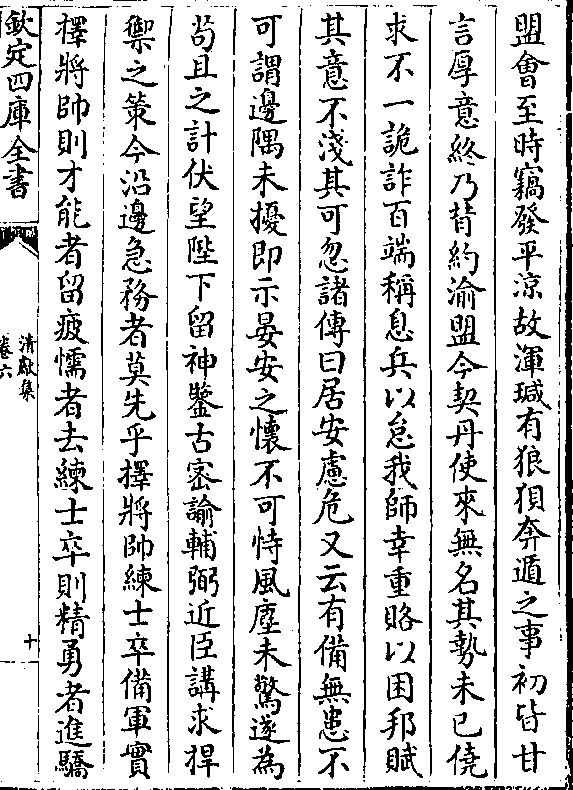 盟會至時竊發平涼故渾瑊有狼狽奔遁之事初皆甘
言厚意終乃背約渝盟今契丹使來無名其勢未已僥
求不一詭詐百端稱息兵以怠我師幸重賂以困邦賦
其意不淺其可忽諸傳曰居安慮危又云有備無患不
可謂邊隅未擾即示晏安之懷不可恃風塵未驚遂為
苟且之計伏望陛下留神鑒古密諭輔弼近臣講求捍
禦之策今沿邊急務者莫先乎擇將帥練士卒備軍實
擇將帥則才能者留疲懦者去練士卒則精勇者進驕
欽定四庫全書
清獻集
卷六
十